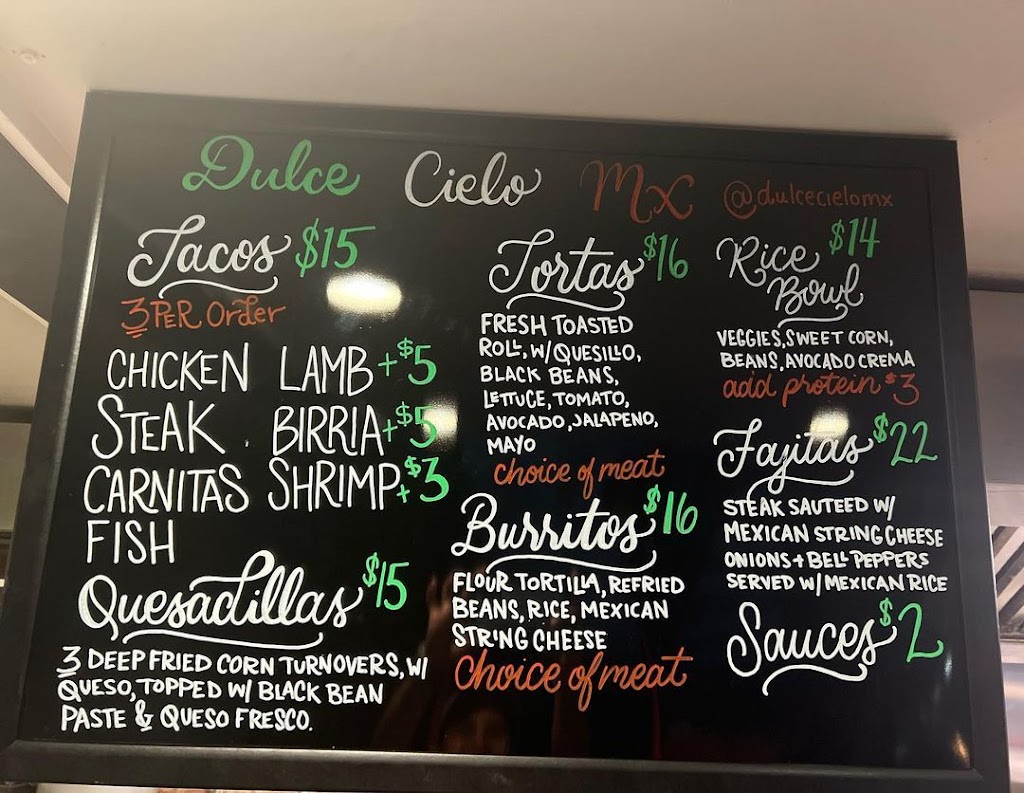 Dulce Cielo Mx @dulcecielomx
Tacos $15
3 PER Order
CHICKEN LAMB +$5
STEAK . BIRRIA +$5
CARNITAS SHRIMP +$3
FISH
Quesadillas $15
3 DEEP FRIED CORN TURNOVERS, W/
QUESO, TOPPED W/ BLACK BEAN
PASTE & QUESO FRESCO.
Tortas $16
FRESH TOASTED
ROLL, W/ QUESILLO,
BLACK BEANS,
LETTUCE, TOMATO,
AVOCADO, JALAPENO,
MAYO
choice of meat
Burritos $16
FLOUR TORTILLA, REFRIED
BEANS, RICE, MEXICAN
STRING CHEESE
Choice of meat
Rice $14
Bowl
VEGGIES, SWEET CORN,
BEANS, AVOCADO CREMA
add protein $3
Fajitas $22
STEAK SAUTEED W/
MEXICAN STRING CHEESE
ONIONS + BELL PEPPERS
SERVED W/ MEXICAN RICE
Sauces $2